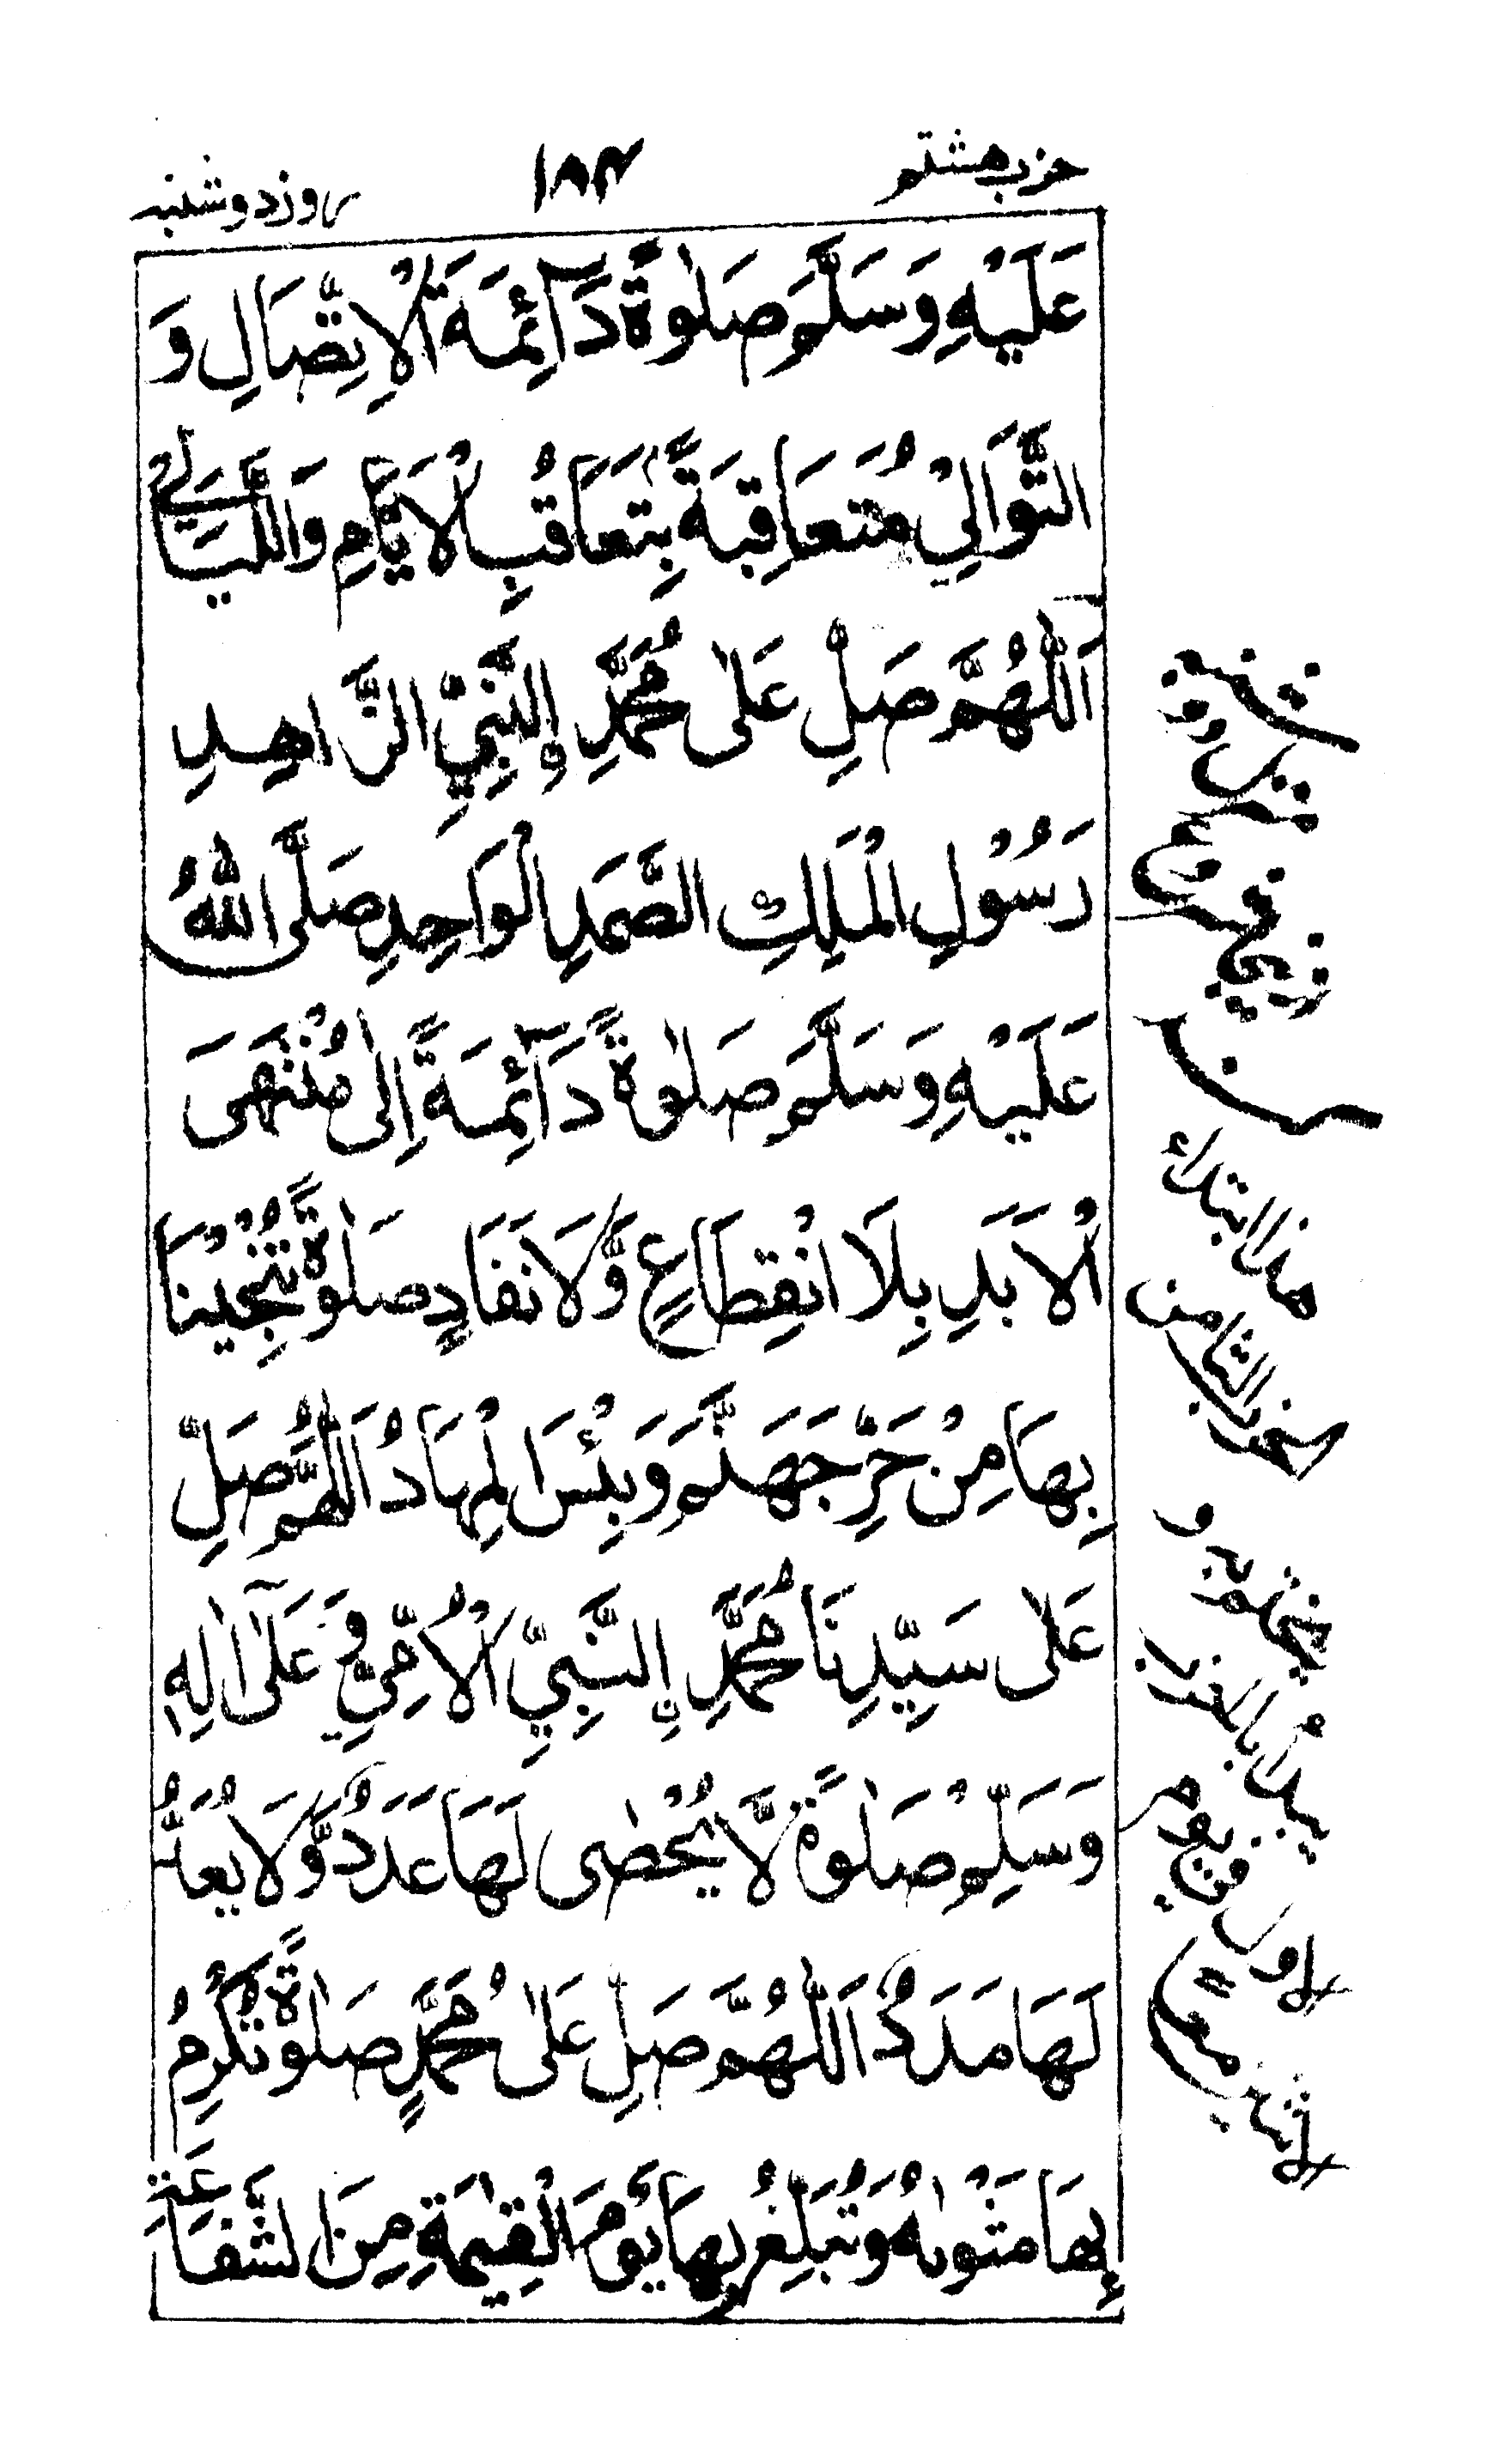 حزب هشتم
۱۸۴
روز دوشنبه
عَلَيْهِ وَسَلَّمَ صَلٰوةً دَآئِمَةَ الْاِتِّصَالِ وَ
التَّوَالِيْ مُتَعَاقِبَةً بِتَعَاقُبِ الْاَيَّامِ وَاللَّيَالِيْ
اَللّٰهُمَّ صَلِّ عَلٰى مُحَمَّدِ ۣالنَّبِيِّ الزَّاهِدِ
رَسُوْلِ الْمَلِكِ الصَّمَدِ الْوَاحِدِ صَلَّى اللّٰهُ
عَلَيْهِ وَسَلَّمَ صَلٰوةً دَآئِمَةً اِلٰى مُنْتَهَى
الْاَبَدِ بِلَا انْقِطَاعٍ وَّلَا نَفَادٍ صَلٰوةً تُنْجِيْنَا
بِهَا مِنْ حَرِّ جَهَنَّمَ وَبِئْسَ الْمِهَادُ اَللّٰهُمَّ صَلِّ
عَلٰى سَيِّدِنَا مُحَمَّدِ ۣالنَّبِيِّ الْاُمِّيِّ وَعَلٰٓى اٰلِهٖ
وَسَلِّمْ صَلٰوةً لَّا يُحْصٰى لَهَا عَدَدٌ وَّلَا يُعَدُّ
لَهَا مَدَدٌ اَللّٰهُمَّ صَلِّ عَلٰى مُحَمَّدٍ صَلٰوةً تُكْرِمُ
بِهَا مَثْوٰىهُ وَتُبَلِّغُ بِهَا يَوْمَ الْقِيٰمَةِ مِنَ الشَّفَاعَةِ
هذا ابتداء
الحزب الثامن